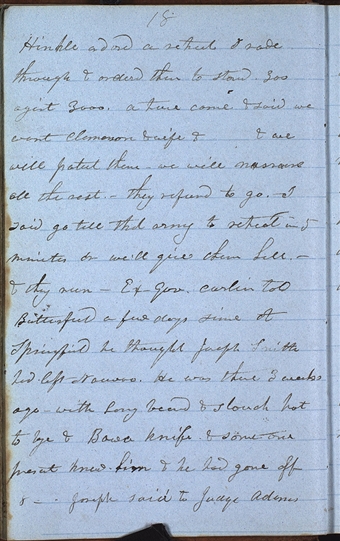 18
Hinkle adord a retreat I rode
through & orderd them to stand. 300
against 3000. a truce came & said we
want Clemonson & wife & & we
will protect them - we will massacre
all the rest. - they refused to go. - I
said go tell the army to retreat in 5
minutes or we'll give them hell. -
& they run - Ex Gov. Carlin told
Butterfield a few days since at
Springfield he thought Joseph Smith
had left Nauvoo. He was there 3 weeks
ago - with long beard & slouch hat
to bye & Bowa knife & some one
present knew him & he had gone off
& - . Joseph said to Judge Adams